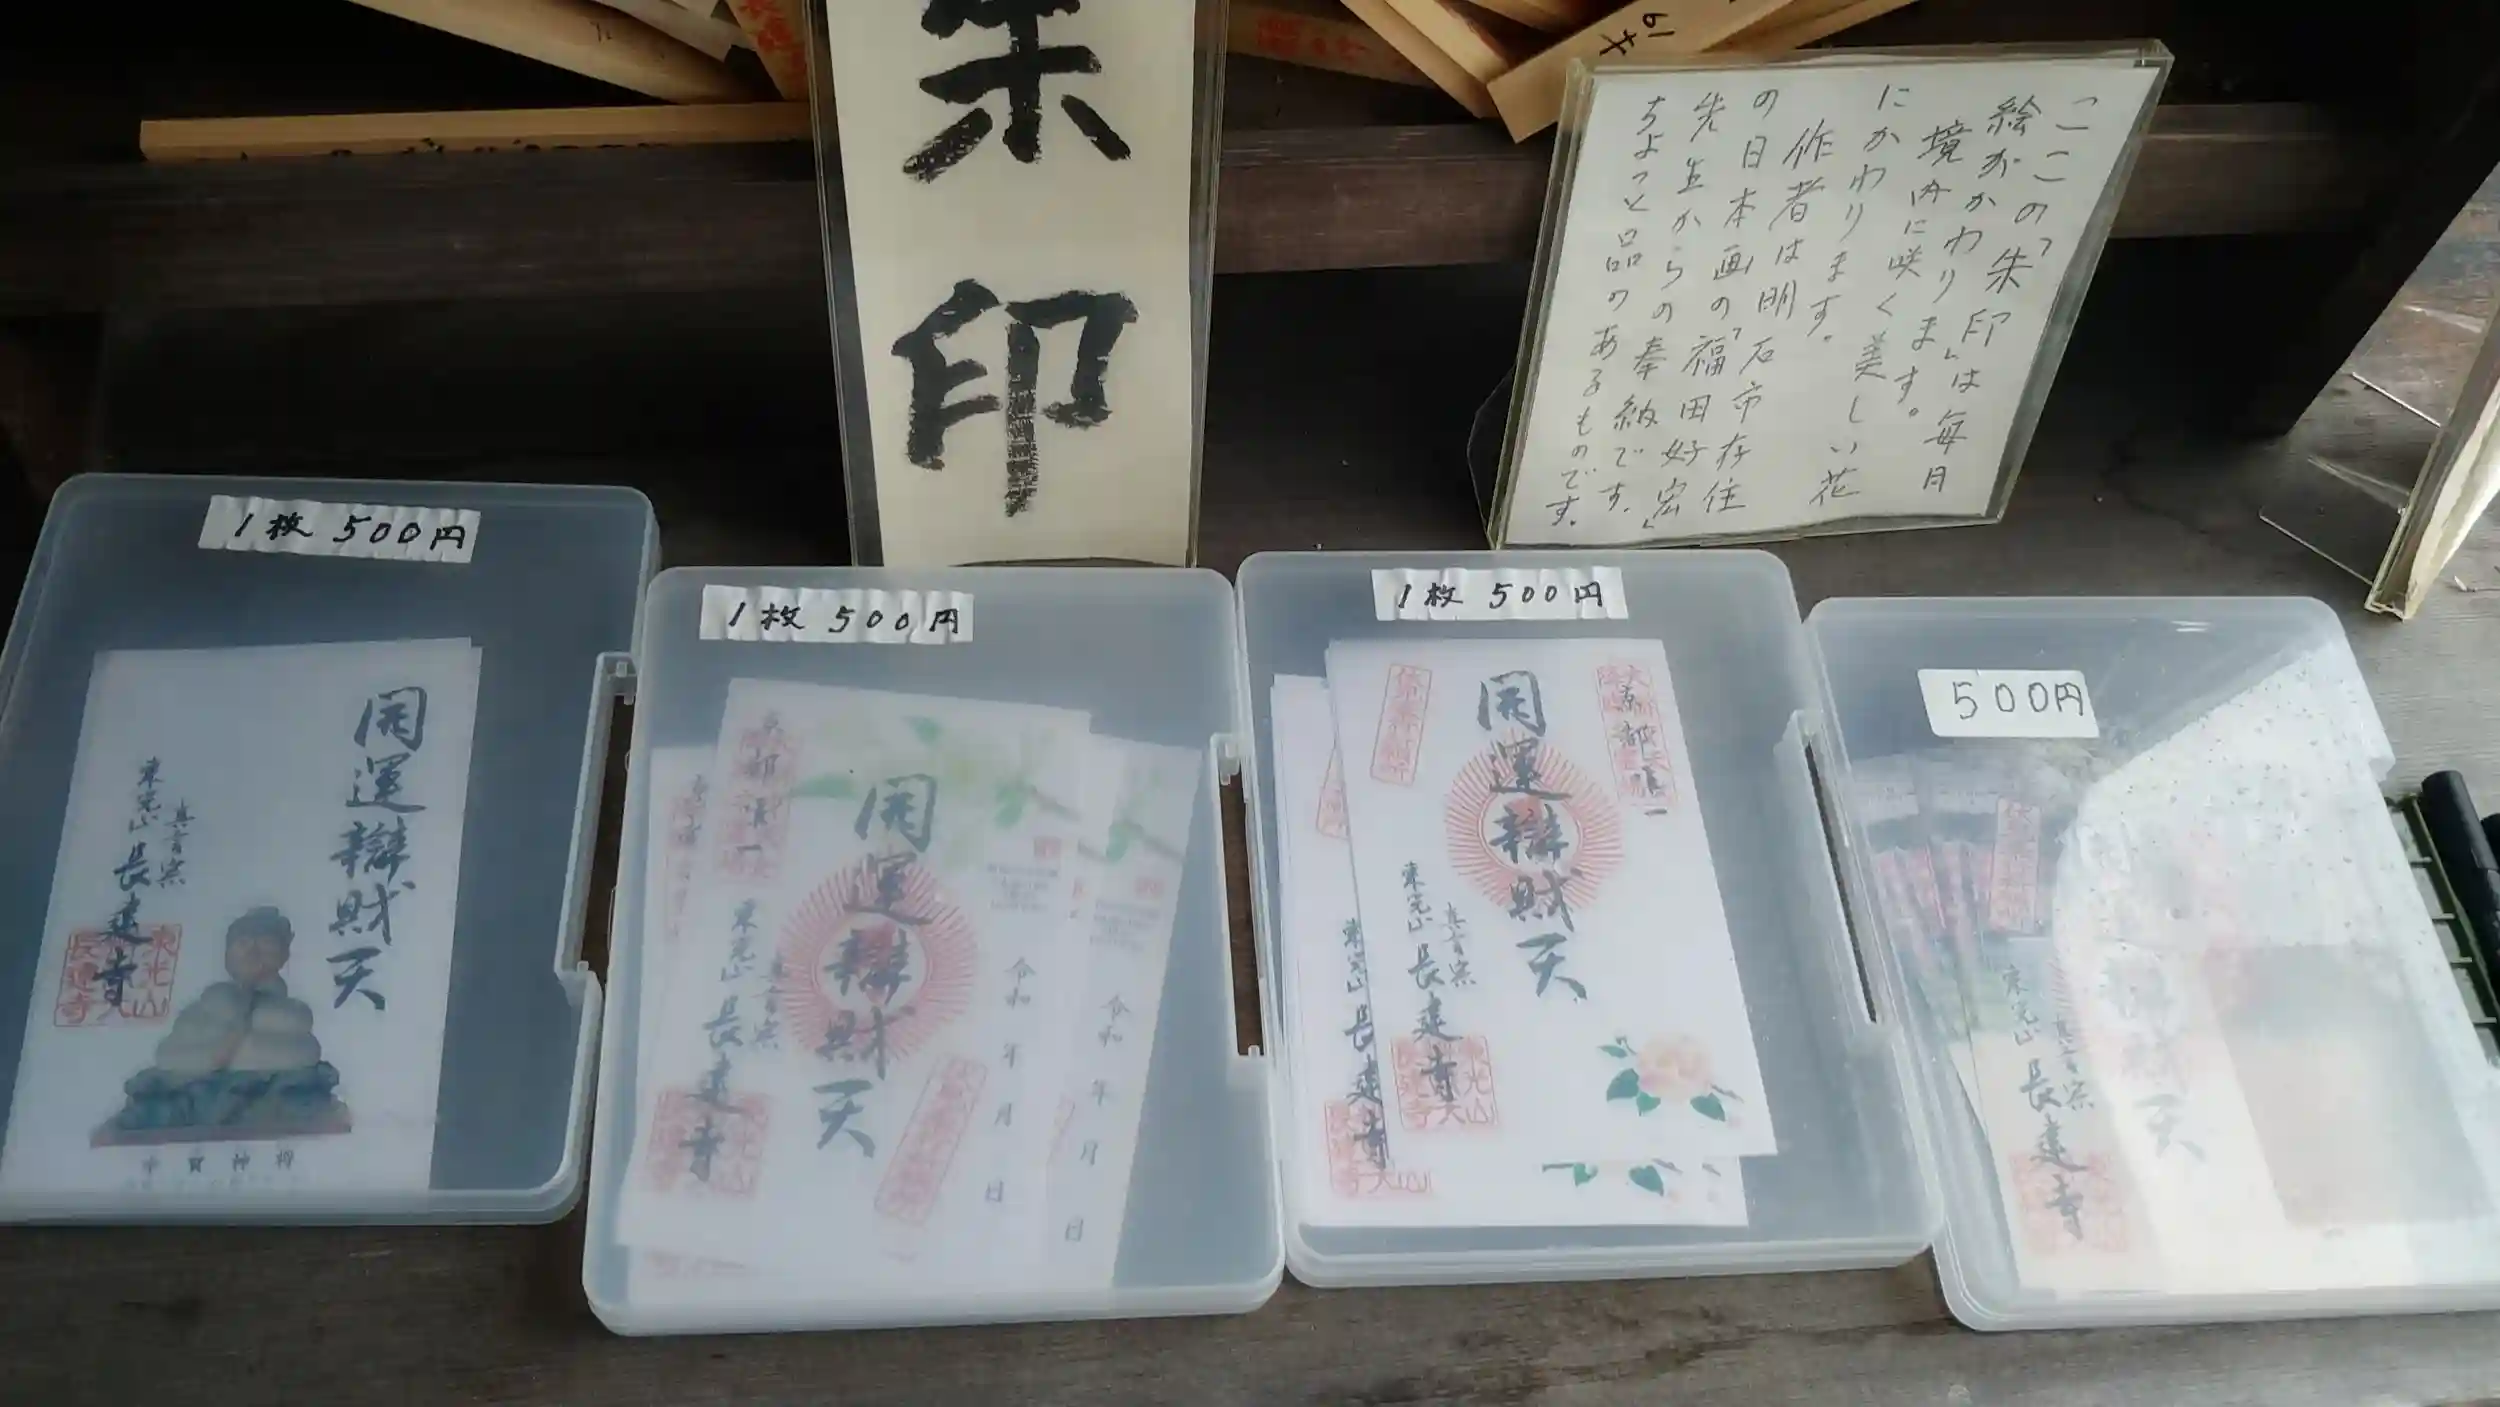 朱印
ここの「朱印」は毎月
絵がかわります。
境内に咲く美しい花
にかわります。
作者は明石市存住
の日本画の「福田好宏」
先生からの奉納です。
ちょっと品のあるものです。
1枚 500円
開運辯財天
真言宗
東光山 長建寺
東光山
長建寺
1枚 500円
京都
開運辯財天
真言宗
東光山 長建寺
令和 年 月 日
令和 年 月 日
1枚 500円
京都唯一
開運辯財天
真言宗
東光山 長建寺
東光山 長建寺
500円
真言宗
東光山 長建寺
天